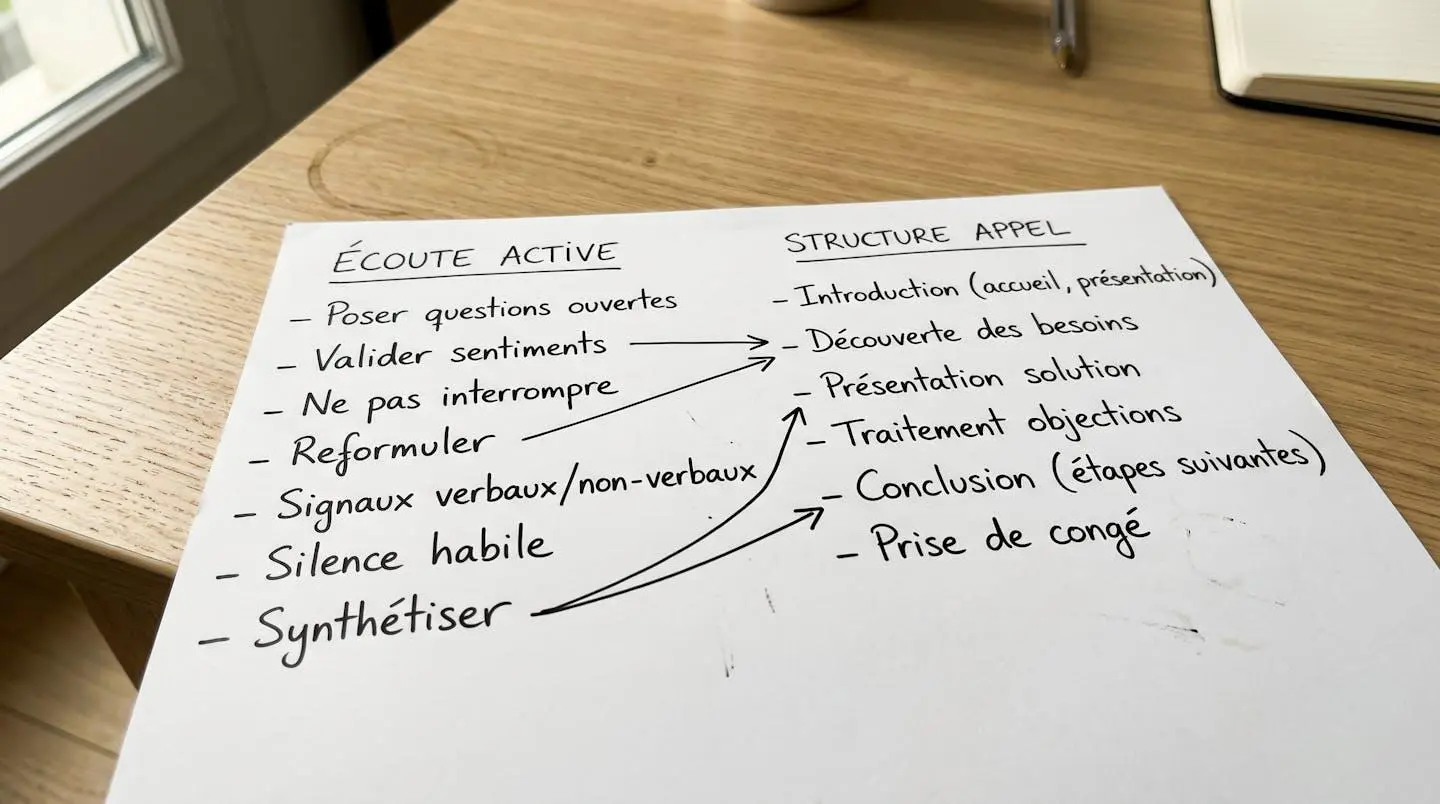 ÉCOUTE ACTIVE
- Poser questions ouvertes
- Valider sentiments
- Ne pas interrompre
- Reformuler
- Signaux verbaux/non-verbaux
- Silence habile
- Synthétiser
STRUCTURE APPEL
- Introduction (accueil, présentation)
- Découverte des besoins
- Présentation solution
- Traitement objections
- Conclusion (étapes suivantes)
- Prise de congé